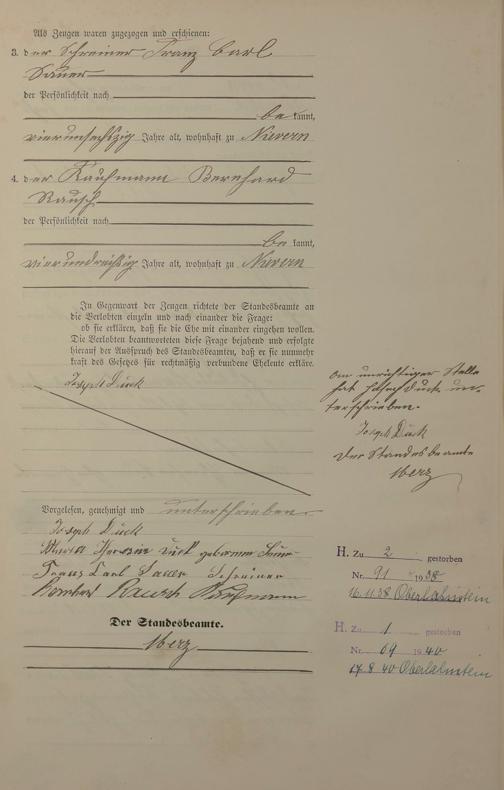 Als Zeugen waren zugezogen und erschienen:
3. der Schreiner Franz Carl
Sauer
der Persönlichkeit nach
be kannt,
vierundsechszig Jahre alt, wohnhaft zu Nievern
4. der Kaufmann Bernhard
Rausch
der Persönlichkeit nach
be kannt,
vierunddreißig Jahre alt, wohnhaft zu Nievern
In Gegenwart der Zeugen richtete der Standesbeamte an
die Verlobten einzeln und nach einander die Frage:
ob sie erklären, daß sie die Ehe mit einander eingehen wollen.
Die Verlobten beantworteten diese Frage bejahend und erfolgte
hierauf der Ausspruch des Standesbeamten, daß er sie nunmehr
kraft des Gesetzes für rechtmäßig verbundene Eheleute erkläre.
Joseph Dück
An unrichtiger Stelle
hat Joseph Dück un-
terschrieben.
Joseph Dück
Der Standesbeamte
Merz
Vorgelesen, genehmigt und unterschrieben
Joseph Dück
Maria Dück geborene Sauer
Franz Carl Sauer Schreiner
Bernhard Rausch Kaufmann
Der Standesbeamte.
Merz
H. Zu 2 gestorben
Nr. 91 1938
16.11.38 Oberlahnstein
H. Zu 1 gestorben
Nr. 69 1940
17.8.40 Oberlahnstein